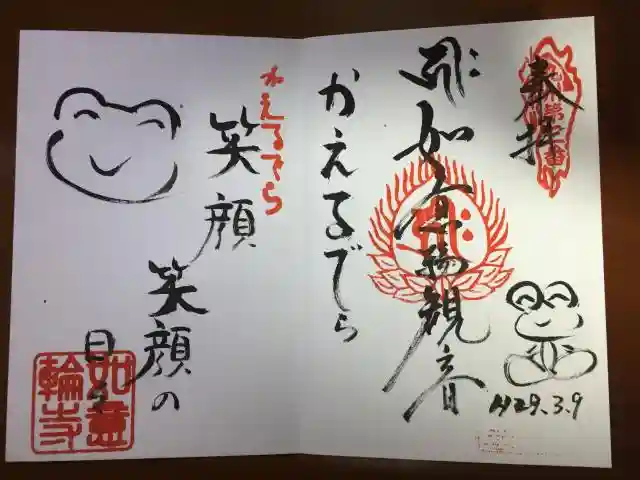 奉拝
如意輪観音
かえるでら
H29.3.9
かえるでら
笑顔
笑顔の
如意
輪寺